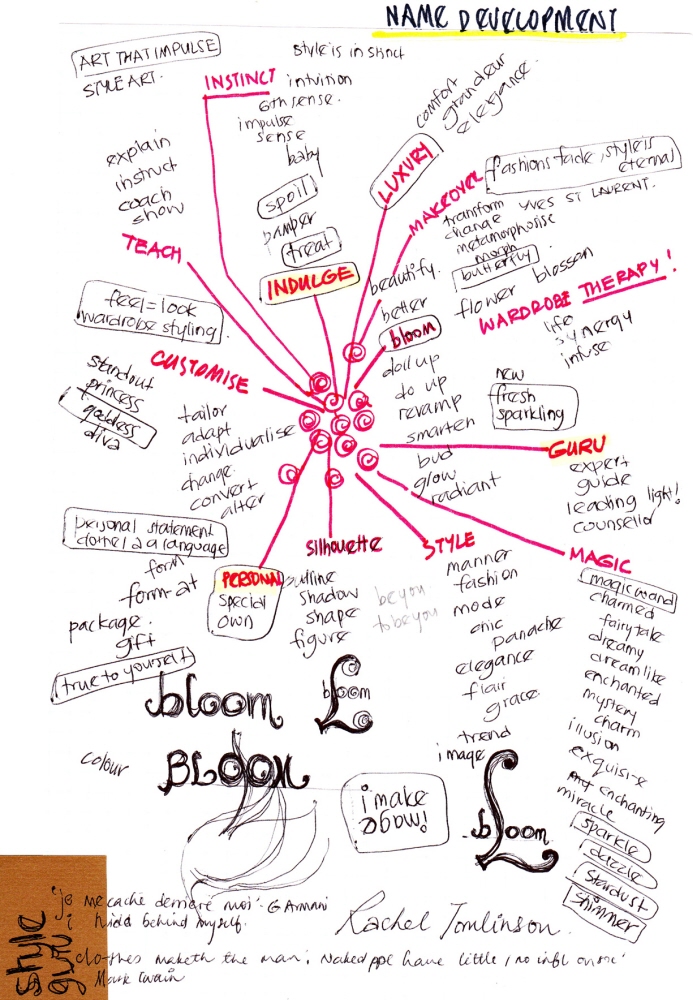 NAME DEVELOPMENT
ART THAT IMPULSE
STYLE ART.
style is instinct
INSTINCT
intuition
6th sense.
impulse
sense
baby
spoil
pamper
treat
INDULGE
comfort
grandeur
elegance.
LUXURY
MAKEOVER
fashions fade, style is
eternal
YVES ST LAURENT.
transform
change
metamorphosise
morph
butterfly
flower blossom
WARDROBE THERAPY!
life
synergy
infuse
explain
instruct
coach
show
TEACH
feel = look
wardrobe styling.
CUSTOMISE
standout
princess
goddess
diva
tailor
adapt
individualise
change.
convert
alter
beautify.
better
bloom
doll up
do up
revamp
smarten
bud
glow
radiant
new
fresh
sparkling
GURU
expert
guide
leading light!
counsellor
personal statement
clothes a language
form
form-at
package.
gift
true to yourself
PERSONAL
special
own
silhouette
outline
shadow
shape
figure
be you
to be you
STYLE
manner
fashion
mode
chic
panache
elegance
flair
grace.
trend
image
MAGIC
magic wand
charmed
fairytale
dreamy
dreamlike
enchanted
mystery
charm
illusion
exquisite
enchanting
miracle
sparkle
dazzle
stardust
shimmer
bloom
bloom
colour
BLOOM
i make
over!
bloom
'je me cache derriere moi' - G Armani
i hide behind myself.
Rachel Tomlinson.
clothes maketh the man; Naked ppl have little / no infl on soc'
Mark Twain
style
guru